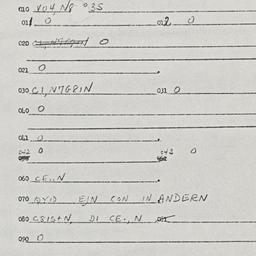 010 V04, N8 °35
011 0 012 0
020 0
021 0
030 C1, N7G8IN 031 0
040 0
041 0
042 0 043 0
060 CE..N
070 QVID EJN CON IN ANDERN
080 CSIG+N, DI CE.,N
090 0